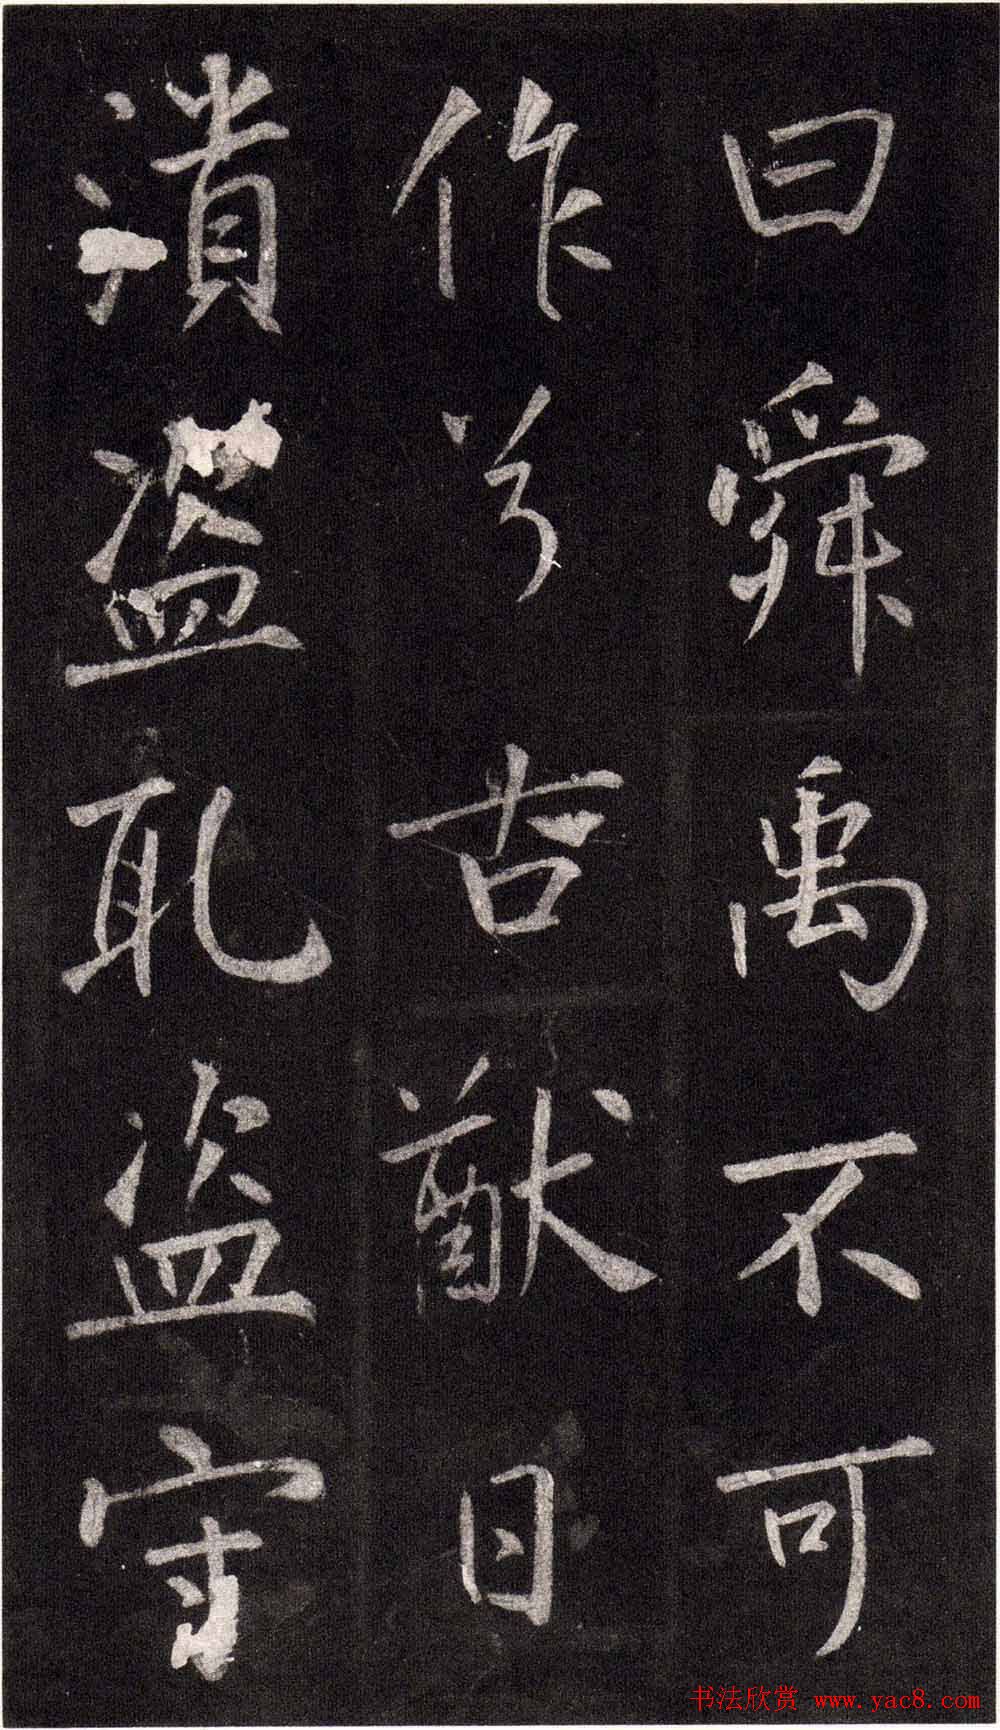 曰舜禹不可
作兮古猷日
潰盗耴盗守
书法欣赏 www.yac8.com